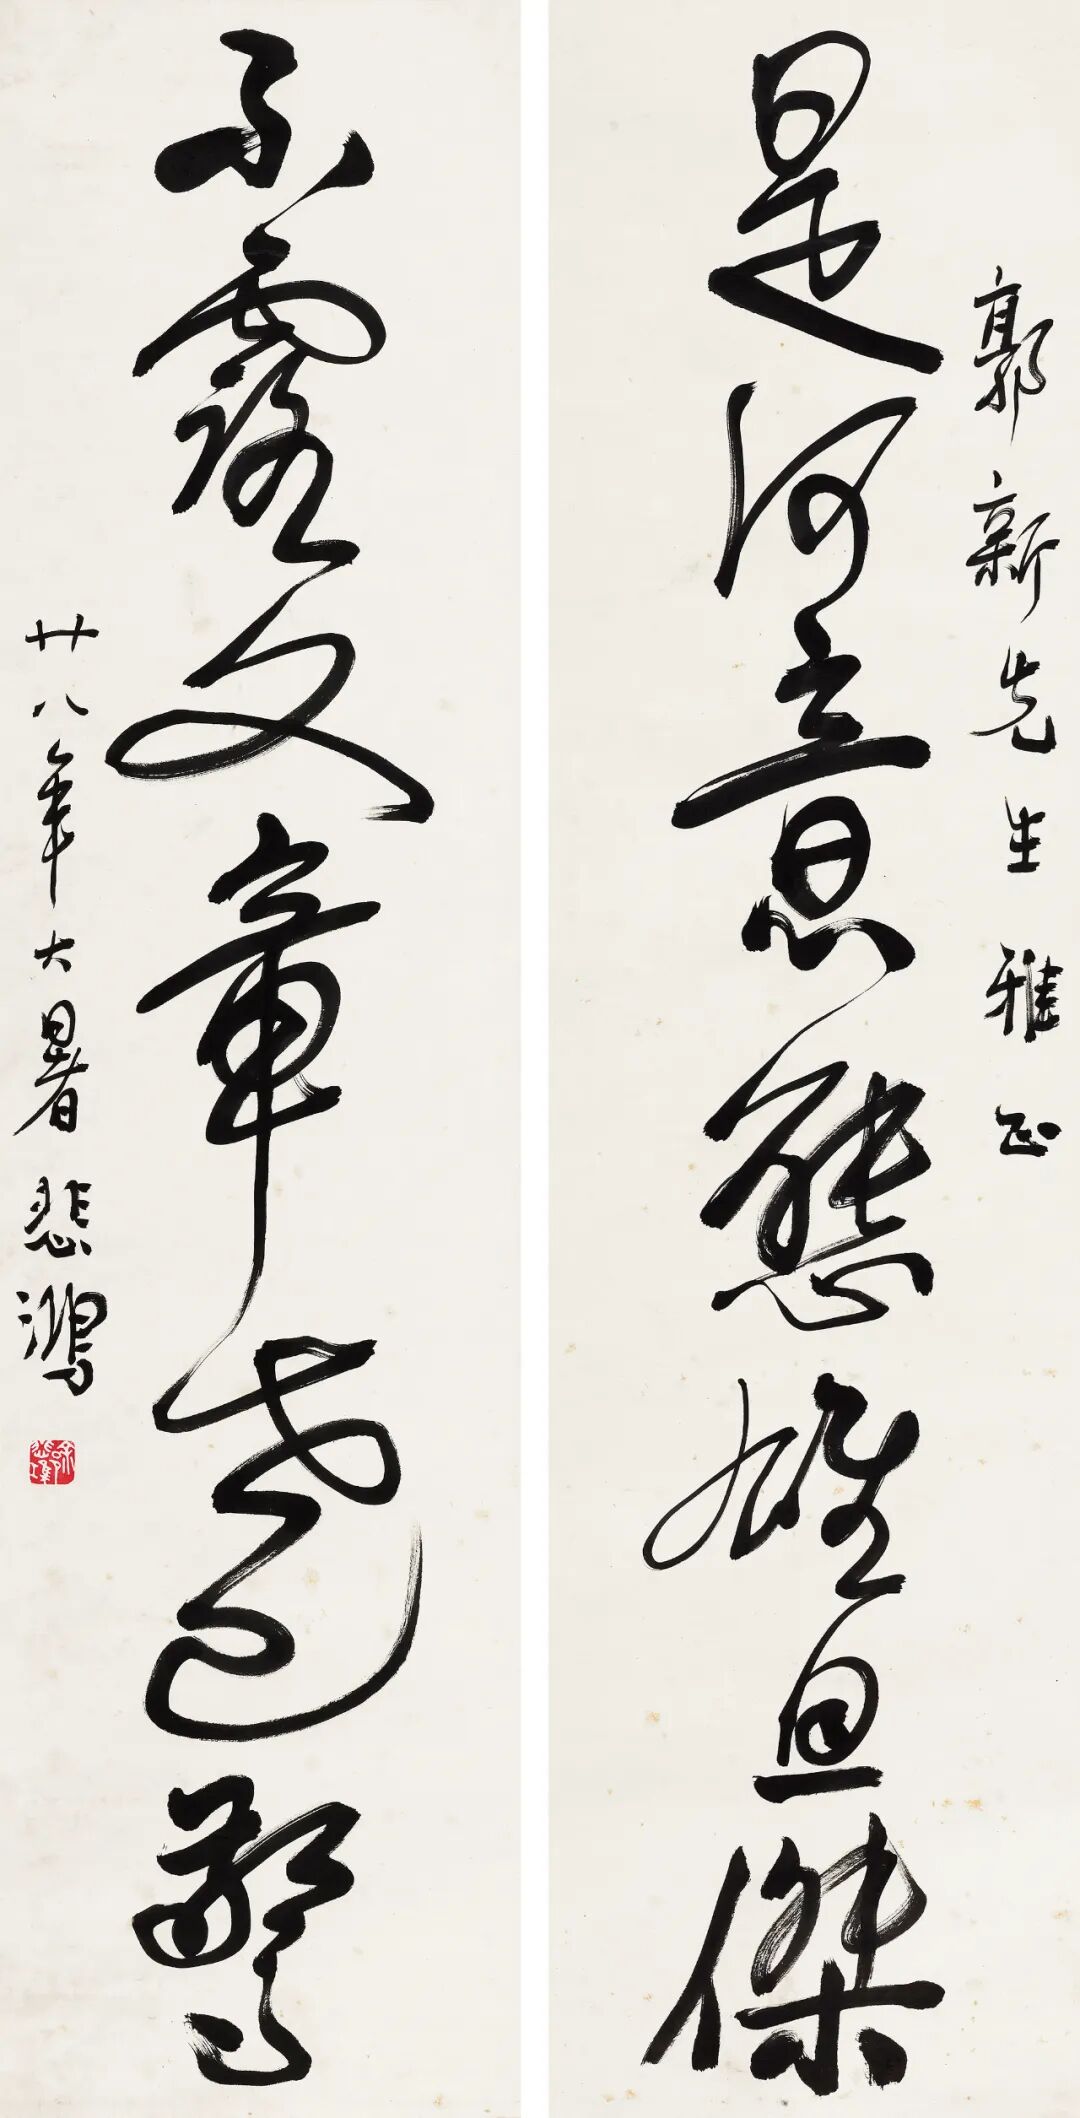 郭新先生雅正
是何意態雄且傑
不露文章世已驚
廿八年大暑 悲鴻